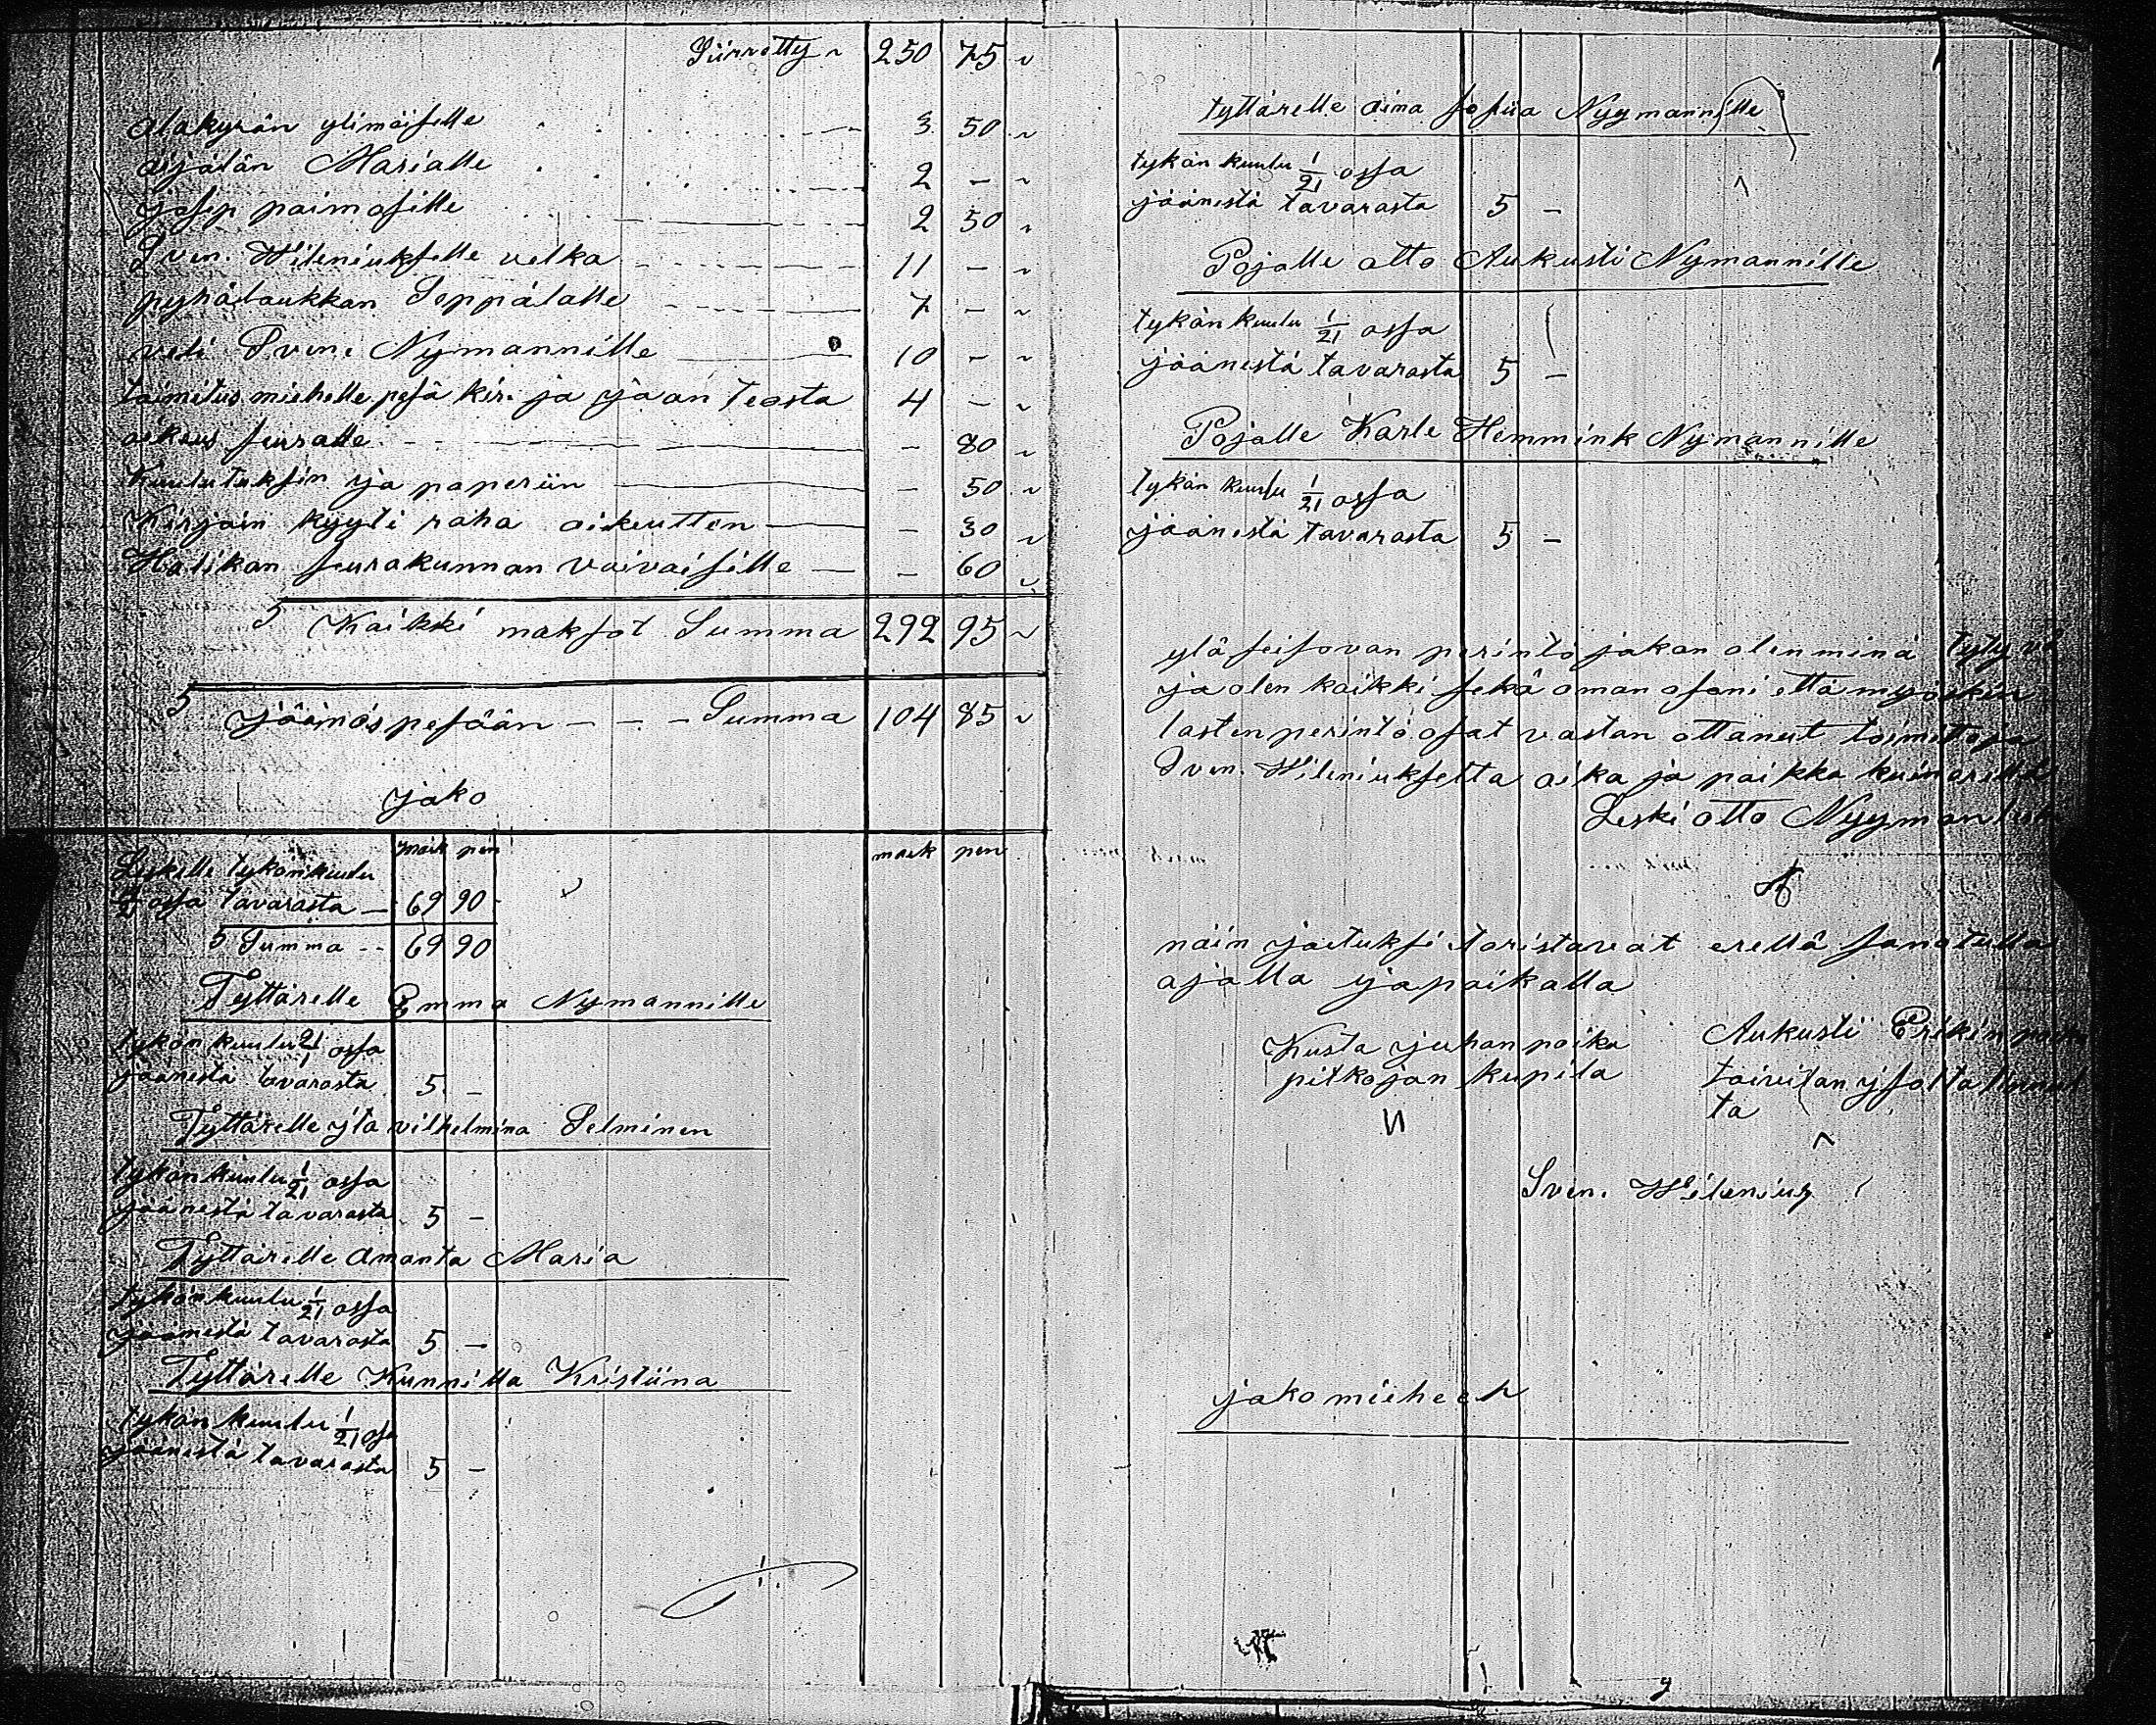 Siirretty 250 75
alakyrän ylimäiselle 3 50
Marialle 2 -
josep paimosille 2 50
Sven. Wileniukselle velka 11 -
pyhälaukkan Seppälälle 7 -
veli Sven. Nymannille 10 -
toimitus miehelle pesä kir. ja jaan teosta 4 -
oikeus seuralle - 80
Kuulutuksin ja paperiin - 50
Kirjain kyyti raha oikeutten - 30
Halikon seurakunnan vaivaisille - 60
Kaikki maksot Summa 292 95
jäänös pesään - - - Summa 104 85
jako
mark pen mark pen
Leskelle tykönkuulu
ossa tavarasta 69 90
Summa 69 90
Tyttärelle Emma Nymannille
tykön kuulu 21/1 ossa
jäänestä tavarasta 5 -
Tyttärelle yta vilhelmina Selminen
tykön kuulu 1/21 ossa
jäänestä tavarasta 5 -
Tyttärelle Amanta Maria
tykön kuulu 1/21 ossa
jäänestä tavarasta 5 -
Tyttärelle Kunnilla Kristiina
tykön kuulu 1/21 osa
jäänestä tavarasta 5 -
tyttärelle aina sofiia Nyymannille
tykön kuulu 1/21 ossa
jäänestä tavarasta 5 -
Pojalle otto Aukusti Nymannille
tykön kuulu 1/21 ossa
jäänestä tavarasta 5 -
Pojalle Karle Hemmink Nymannille
tykön kuulu 1/21 ossa
jäänestä tavarasta 5 -
ylä seisovan perintö jakon olen minä
ja olen kaikki sekä oman osani että myöskin
lasten perintö osat vastan ottanut
Sven. Wileniukselta aika ja paikka kuin
Leski otto Nyyman
näin jaetuksi toristavat erellä sanotulla
ajalla ja paikalla
Kusta juhan poika Aukusti Erikin
pitkäjan kupila
ta
Sven. Wilenius
jako miiheet